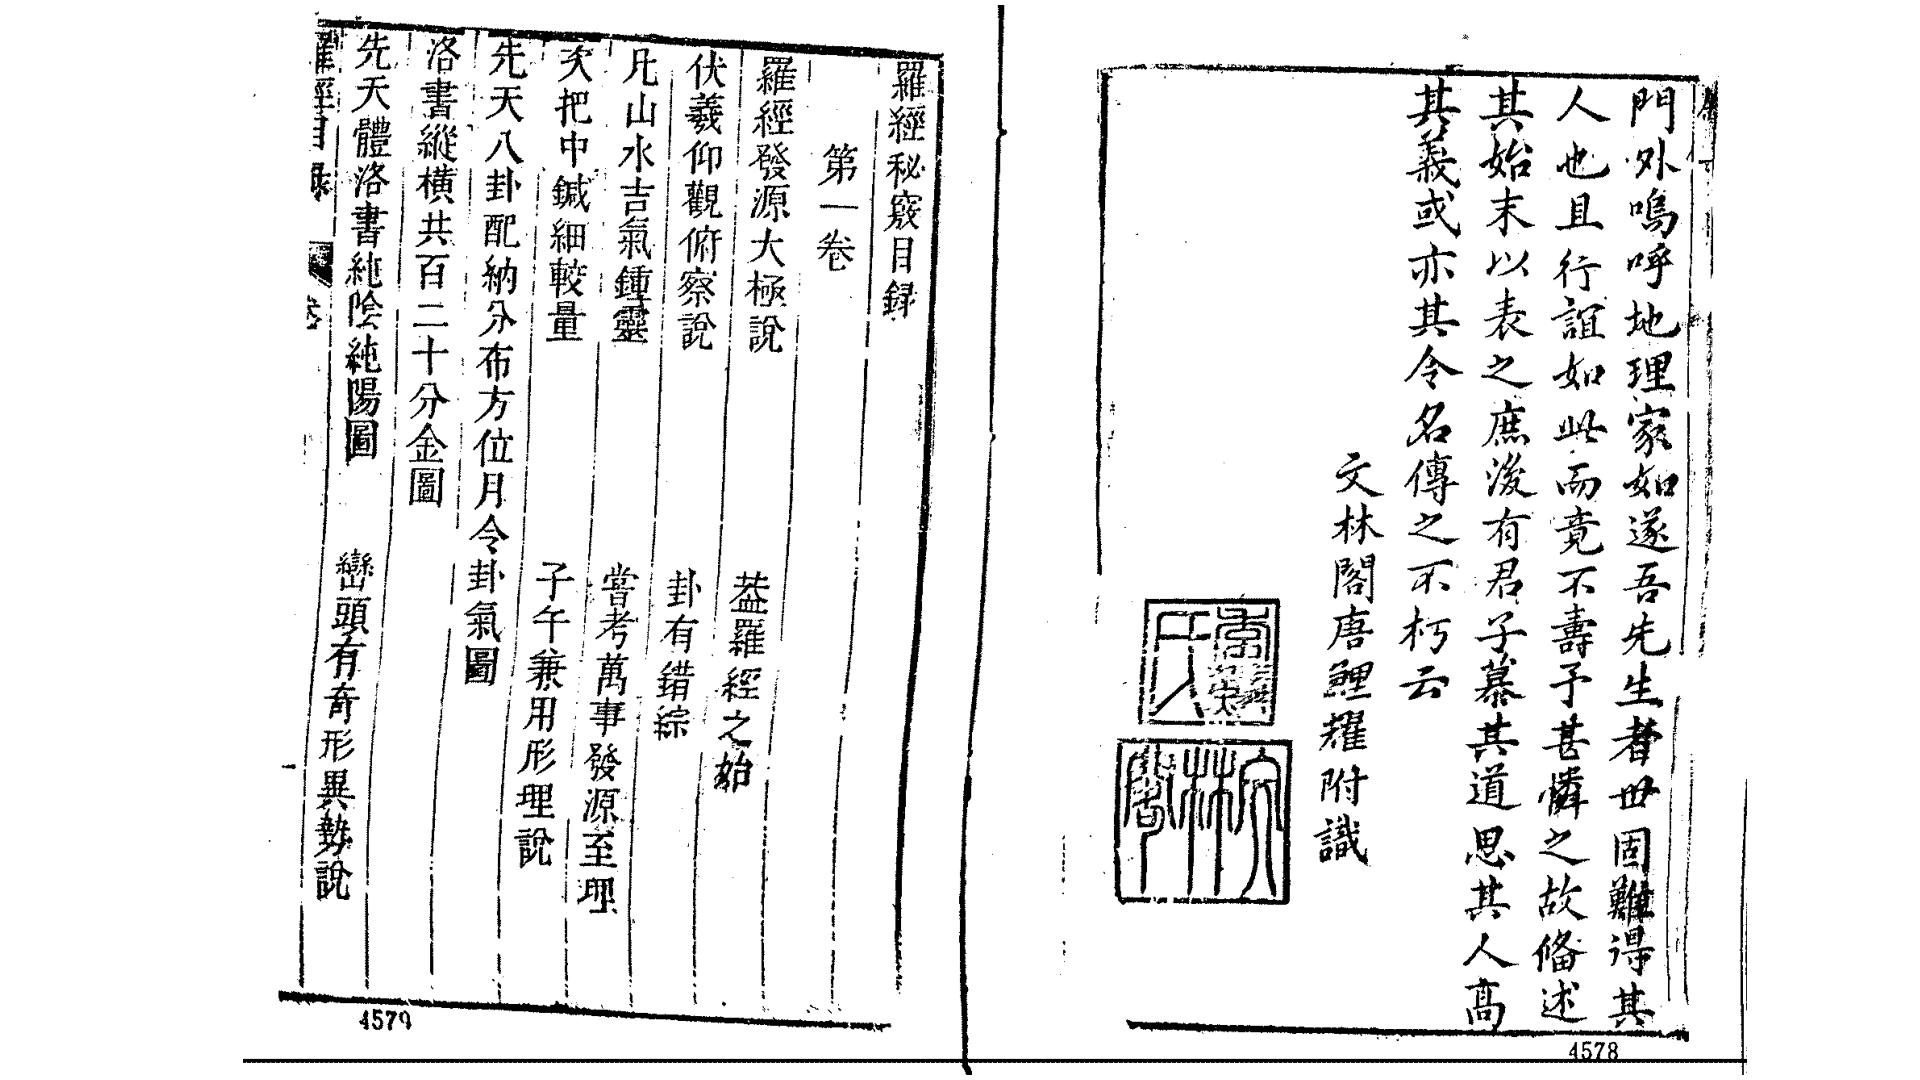 門外嗚呼地理家如遂吾先生者世固難得其
人也且行誼如此而竟不壽予甚憐之故偹述
其始末以表之庶後有君子慕其道思其人高
其義或亦其令名傳之不朽云
文林閣唐鯉耀附識
文林閣
4578
羅經秘竅目録
第一卷
羅經發源大極說 葢羅經之始
伏羲仰觀俯察說 卦有錯綜
凡山水吉氣鍾靈 嘗考萬事發源至理
次把中鍼細較量 子午兼用形理說
先天八卦配納分布方位月令卦氣圖
洛書縱橫共百二十分金圖
先天體洛書純陰純陽圖 巒頭有奇形異勢說
羅經目録 卷
4579